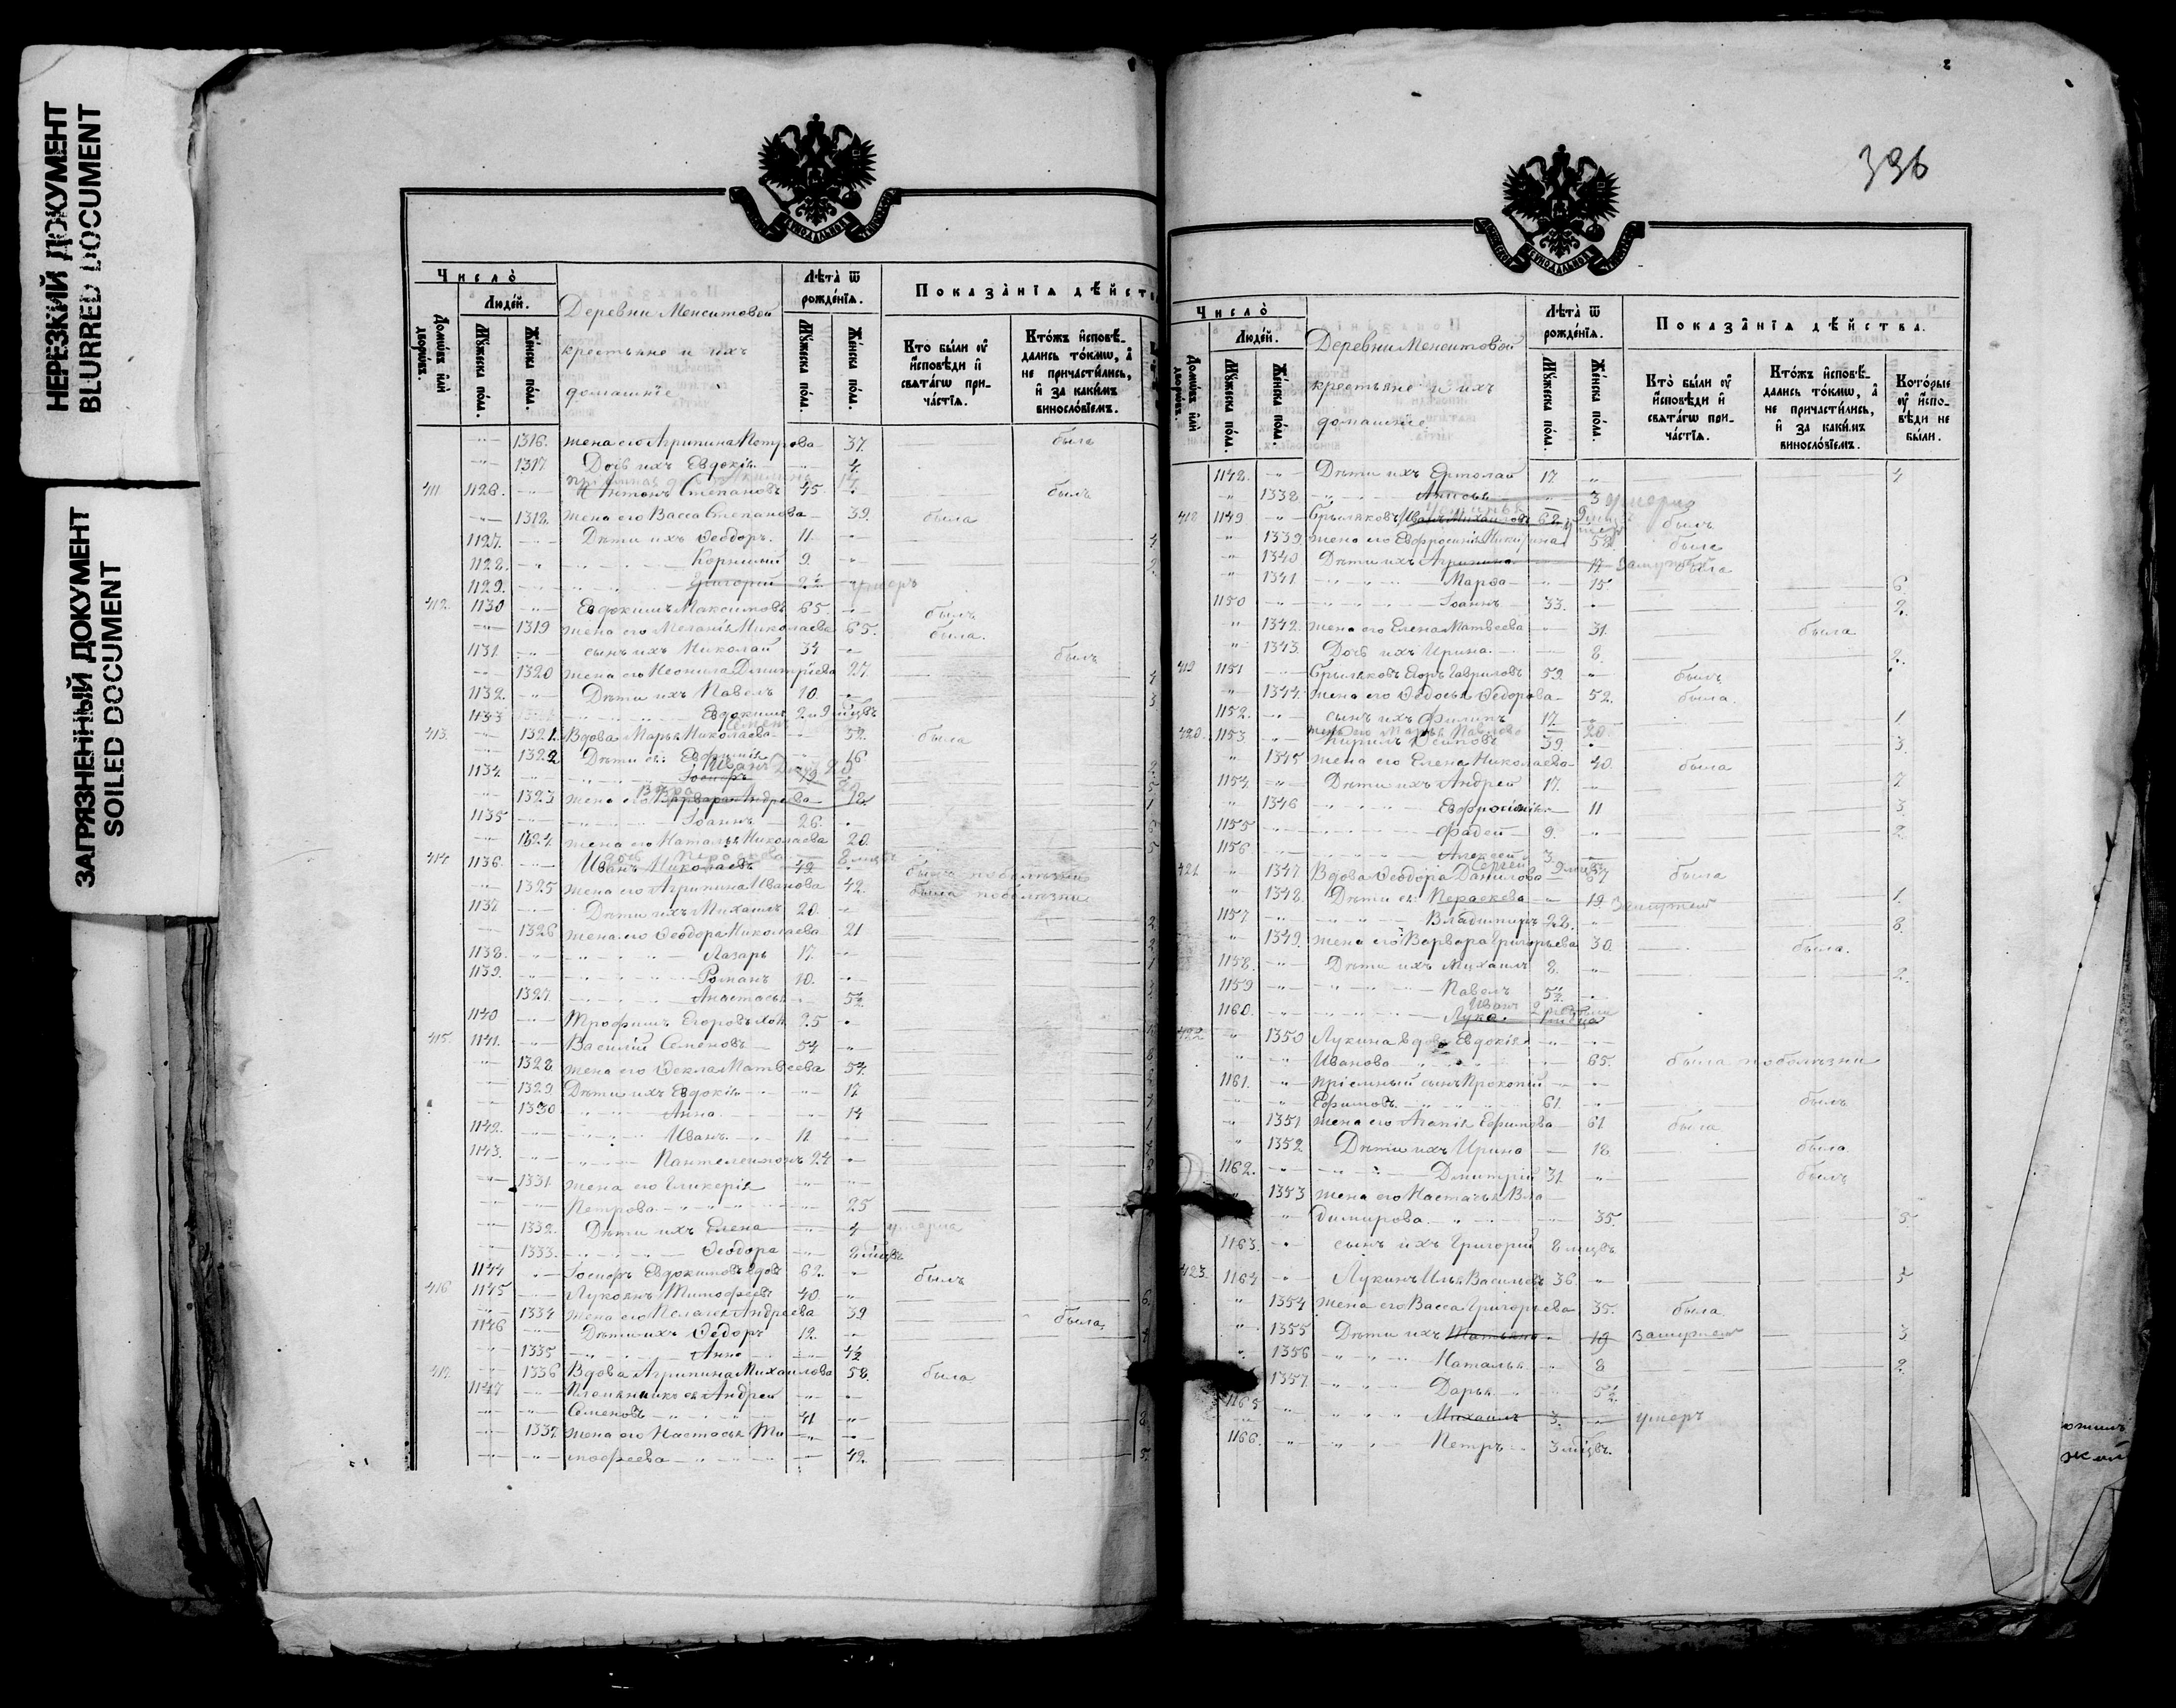 НЕРЕЗКИЙ ДОКУМЕНТ
BLURRED DOCUMENT
ЗАГРЯЗНЕННЫЙ ДОКУМЕНТ
SOILED DOCUMENT
Число̀
Людей.
Домѡвъ илѝ дворѡвъ.
Мꙋжеска пола.
Женска пола.
Деревни Менситовой
крестьяне и ихъ
домашніе
Лѣта ѿ рожденїѧ.
Мꙋжеска пола.
Женска пола.
Показанїѧ дѣйств
Кто были ᲂу҆ и҆сповѣди и҆ свѧтагѡ причастїѧ.
Ктожъ и҆сповѣдались токмѡ, а҆ не причастились, и҆ за какимъ винословїемъ.
1316. жена его Агрипина Петрова 37. была
1317 Дочь ихъ Евдокія 4.
411 1126. Антонъ Степановъ 45 былъ
1318. жена его Васса Степанова 39. была
1127. Дѣти ихъ Ѳеодоръ. 11. 4.
1128. Корнилий 9. 2.
1129. Григорій 2½ умеръ
412. 1130 Евдокимъ Максимовъ 65. былъ
1319 жена его Меланія Николаева 65. была.
1131. сынъ ихъ Николай 34 былъ
1320 жена его Неонила Димитріева 27. 4
1132. Дѣти ихъ Павелъ 10. 3
1133 Евдокимъ 2 и 9 мѣцвъ
Семенъ
413. 1321. Вдова Марья Николаева 52. была
1322 Дѣти ея: Евфимія 16 2.
Иванъ
1134. Іосифъ 19 5
1323 жена его Варвара Андреева 18 1
1135 Іоаннъ 26. 6
1624 жена его Наталья Николаева 20. 5
дочь Пераскева 8 мѣцвъ
414 1136. Иванъ Николаевъ 42 былъ поболѣзни
1325 жена его Агрипина Иванова 42. была поболѣзни
1137 Дѣти ихъ Михаилъ 20. 2
1326 жена его Ѳеодора Николаева 21 2
1138. Лазарь 17. 1
1139. Романъ 10. 3
1327. Анастасья 5½
1140 Трофимъ Егоровъ хол. 25
415. 1141. Василій Семеновъ 54 8
1328 жена его Ѳекла Матвѣева 54.
1329 Дѣти ихъ Евдокія 17
1330 Анна 14 1
1142. Иванъ 11
1143. Пантелеимонъ 24
1331 жена его Гликерія
Петрова 25
1332. Дѣти ихъ Елена 4 умерла
1333. Ѳеодора 2 мѣцвъ
1144 Іосифъ Евдокимовъ вдов 62. былъ
416 1145 Лукоянъ Тимофеевъ 40 6.
1334 жена его Пелагея Андреева 39 была
1146 Дѣти ихъ Ѳедоръ 12. 4
1335 Анна 4½
417. 1336 Вдова Агрипина Михаилова 58. была
1147 Племянникъ ея Андрей
Семеновъ 41 8.
1337 жена его Настасья Ти
мофеева 42. 5.
396
Число̀
Людей.
Домѡвъ илѝ дворѡвъ.
Мꙋжеска пола.
Женска пола.
Деревни Менситовой
крестьяне и ихъ
домашніе
Лѣта ѿ рожденїѧ.
Мꙋжеска пола.
Женска пола.
Показанїѧ дѣйства.
Кто были ᲂу҆ и҆сповѣди и҆ свѧтагѡ причастїѧ.
Ктожъ и҆сповѣдались токмѡ, а҆ не причастились, и҆ за какимъ винословїемъ.
Которые ᲂу҆ и҆сповѣди не были.
1148. Дѣти ихъ Ермолай 17. 4
1338 Анисья 3 умерла
418 1149 Брыляковъ Иванъ Михаиловъ 62. былъ
1339 жена его Евфросинія Никитина 58 была
1340 Дѣти ихъ Агрипина 17 замужемъ была
1341 Марѳа 15. 6.
1150 Іоаннъ 33. 2.
1342. жена его Елена Матвеева 31. была
1343. Дочь ихъ Ирина 8. 2.
419 1151 Брыляковъ Егоръ Гавриловъ 59. былъ
1344. жена его Ѳедосья Ѳедорова 52. была.
1152. сынъ ихъ Филипъ 17 1.
жена его Марья Павлова 20
420. 1153. Кирилъ Осиповъ 39. 3.
1345 жена его Елена Николаева 40. была
1154 Дѣти ихъ Андрей 17. 2
1346 Евфросинія 11 3.
1155 Фадей 9. 2.
1156 Алексей 3
Сергей 9 мцвъ
421. 1347 Вдова Ѳеодора Данилова 67 была
1348. Дѣти ея: Пераскева 19 замужемъ 1.
1157 Владимиръ 28. 8.
1349. жена его Варвара Григорьева 30. была.
1158. Дѣти ихъ Михаилъ 8. 2.
1159 Павелъ 5½
Иванъ
1160. Лука
422 1350 Лукина вдова Евдокія
Иванова 65. была поболѣзни
1161. пріемный сынъ Прокопій
Ефимовъ 61. былъ
1351 жена его Агапія Ефимова 61 была
1352 Дѣти ихъ Ирина 18 была
1162. Дмитрій 31. былъ
1353 жена его Настасья Вла
димирова 35. 5.
1163. сынъ ихъ Григорій 8 мцвъ
423. 1164 Лукинъ Илья Васильевъ 36 5
1354 жена его Васса Григорьева 35. была
1355 Дѣти ихъ Татьяна 19 замужемъ 3
1356 Наталья 8 2
1357 Дарья 5½
1165 Михаилъ 3. умеръ
1166. Петръ 3 мѣцвъ.